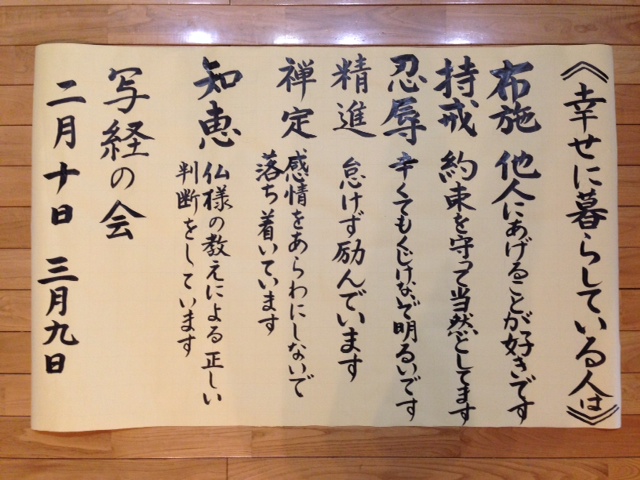 《幸せに暮らしている人は》
布施 他人にあげることが好きです
持戒 約束を守って当然としてます
忍辱 辛くてもくじけないで明るいです
精進 怠けず励んでいます
禅定 感情をあらわにしないで
落ち着いています
知恵 仏様の教えによる正しい
判断をしています
写経の会
二月十日 三月九日